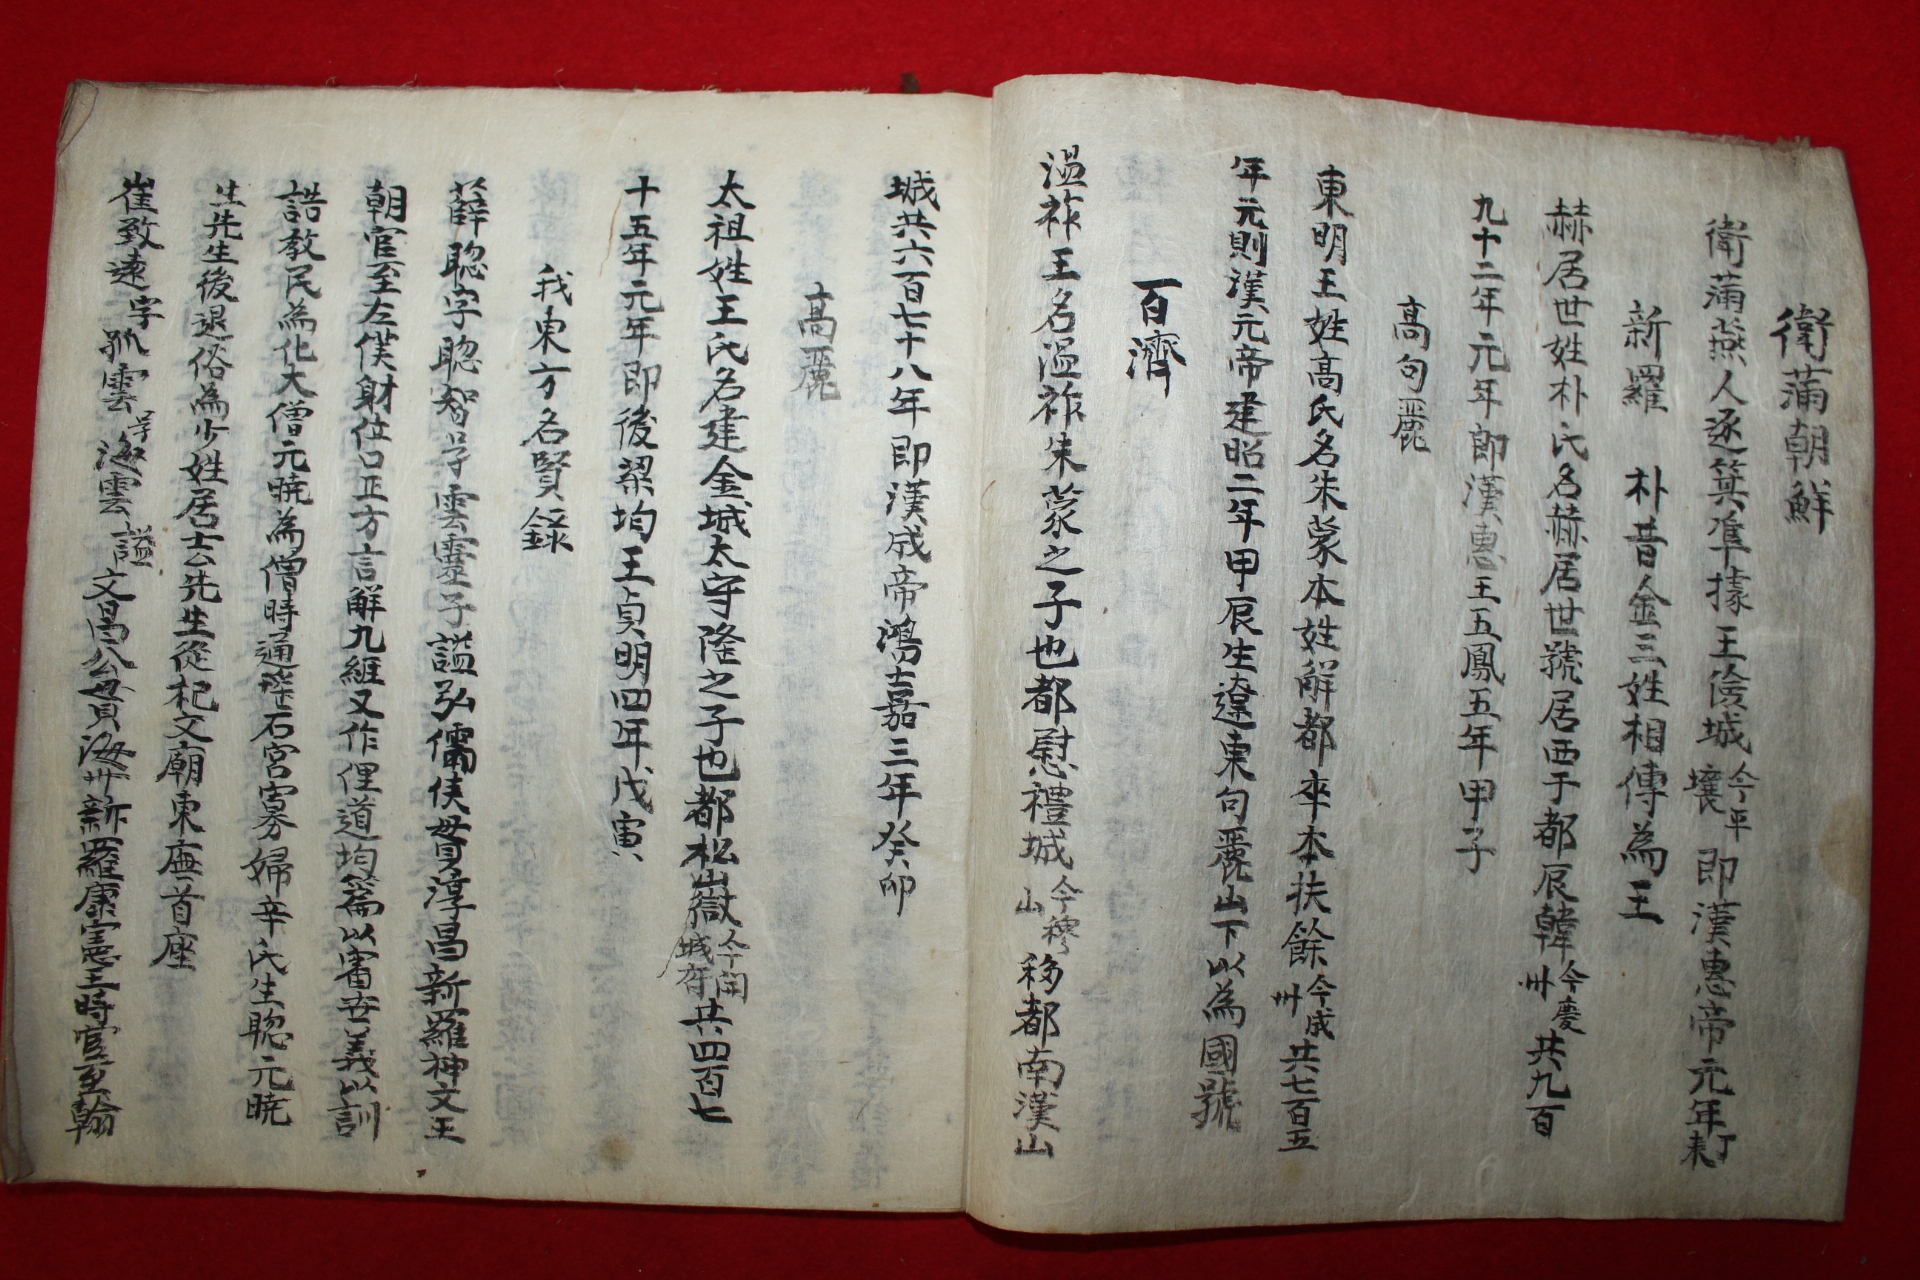 衛蒲朝鮮
衛蒲燕人逐箕準據王儉城今平壤即漢惠帝元年丁未
新羅 朴昔金三姓相傳為王
赫居世姓朴氏名赫居世號居西干都辰韓今慶州共九百
九十二年元年即漢惠王五鳳五年甲子
高句麗
東明王姓高氏名朱蒙本姓解都卒本扶餘今成州共七百五
年元則漢元帝建昭二年甲辰生遼東句麗山下以為國號
百濟
溫祚王名溫祚朱蒙之子也都慰禮城今稷山移都南漢山
城共六百七十八年即漢成帝鴻嘉三年癸卯
高麗
太祖姓王氏名建金城太守隆之子也都松嶽今開城府共四百七
十五年元年即後梁均王貞明四年戊寅
我東方名賢錄
薛聰字聰智号雲靈子謚弘儒侯母貫淳昌新羅神文王
朝官至左僕射位以正方言解九經又作俚道均篇以審世義以訓
誥教民為化大僧元曉為僧時通瑤石宮寡婦辛氏生聰元曉
生先生後退俗為少姓居士云先生從杞文廟東廡首座
崔致遠字孤雲号海雲謚文昌公貫海州新羅康憲王時官至翰